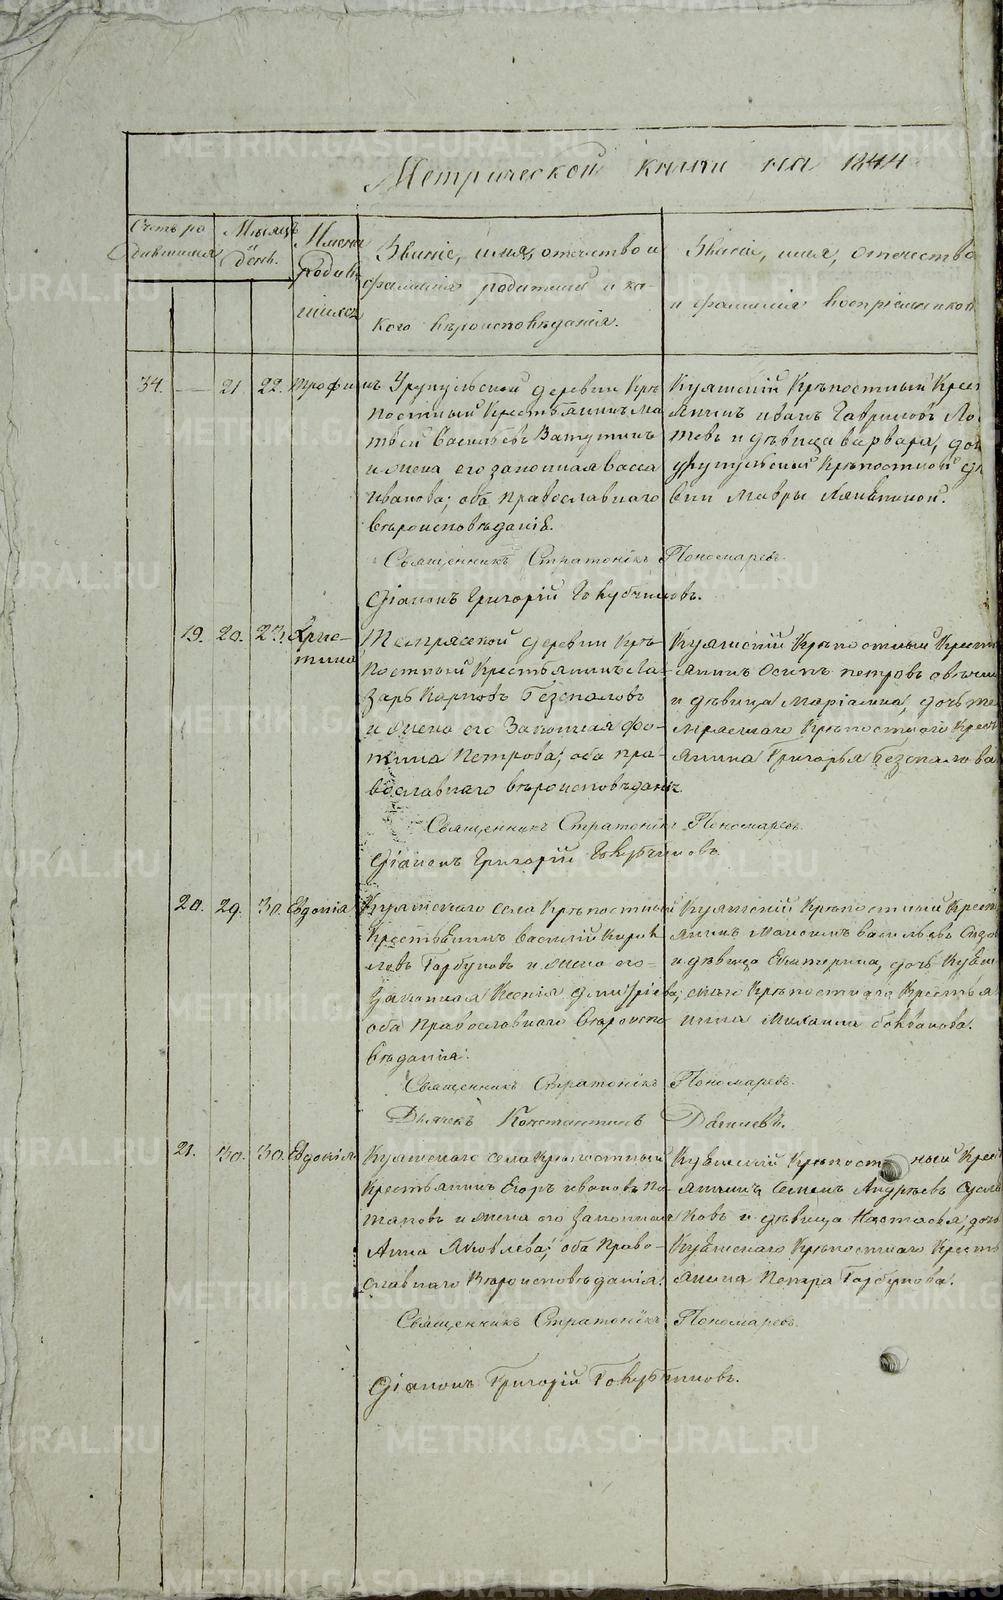 Метрической книги на 1844
Счетъ ро
дившихся
Мѣсяцъ
и
день.
Имена
родив
шихся
Званіе, имя, отечество и
фамилія родителей и ка-
кого вѣроисповѣданія.
Званіе, имя, отечество
и фамилія воспріемниковъ
34. — 21 22. Трофимъ
деревни Крѣ
постный Крестьянинъ Ма
твей Васильевъ Ватутинъ
и жена его законная Васса
Иванова; оба православнаго
вѣроисповѣданія.
Куяшскій Крѣпостный Крест
янинъ Иванъ Гавриловъ
и дѣвица Варвара,
Крѣпостной
Мавры
Священникъ Стратоникъ Пономаревъ.
Діаконъ Григорій
19. 20. 23. Хрис-
тина
деревни Крѣ-
постный Крестьянинъ Ла-
зарь Карповъ Безпаловъ
и жена его Законная Фо-
тина Петрова; оба пра-
вославнаго вѣроисповѣданія.
Куяшскій Крѣпостный Крестн
янинъ Осипъ Петровъ
и дѣвица Маріамна, дочь
Крѣпостнаго Крест
янина Григорья Безпалова
Священникъ Стратоникъ Пономаревъ.
Діаконъ Григорій
20. 29. 30. Евдокія
Куяшскаго села Крѣпостный
Крестьянинъ Василій Кирил
ловъ Горбуновъ и жена его-
Законная Ксенія Дмитріева;
оба Православнаго Вѣроиспо-
вѣданія.
Куяшскій Крѣпостный Крест
янинъ Максимъ Васильевъ
и дѣвица Екатерина, дочь Куяш
скаго Крѣпостнаго Крестья
нина Михаила
Священникъ Стратоникъ Пономаревъ.
Дьячекъ Константинъ
21. 30. 30. Евдокія
Куяшскаго села Крѣпостный
Крестьянинъ Егоръ Ивановъ По-
таповъ и жена его Законная
Анна Яковлева; оба Право-
славнаго Вѣроисповѣданія.
Куяшскій Крѣпостный Крест
янинъ Семенъ Андреевъ
ковъ и дѣвица Настасья, дочь
Куяшскаго Крѣпостнаго Кресть
янина Петра Горбунова.
Священникъ Стратоникъ Пономаревъ.
Діаконъ Григорій
METRIKI.GASO-URAL.RU